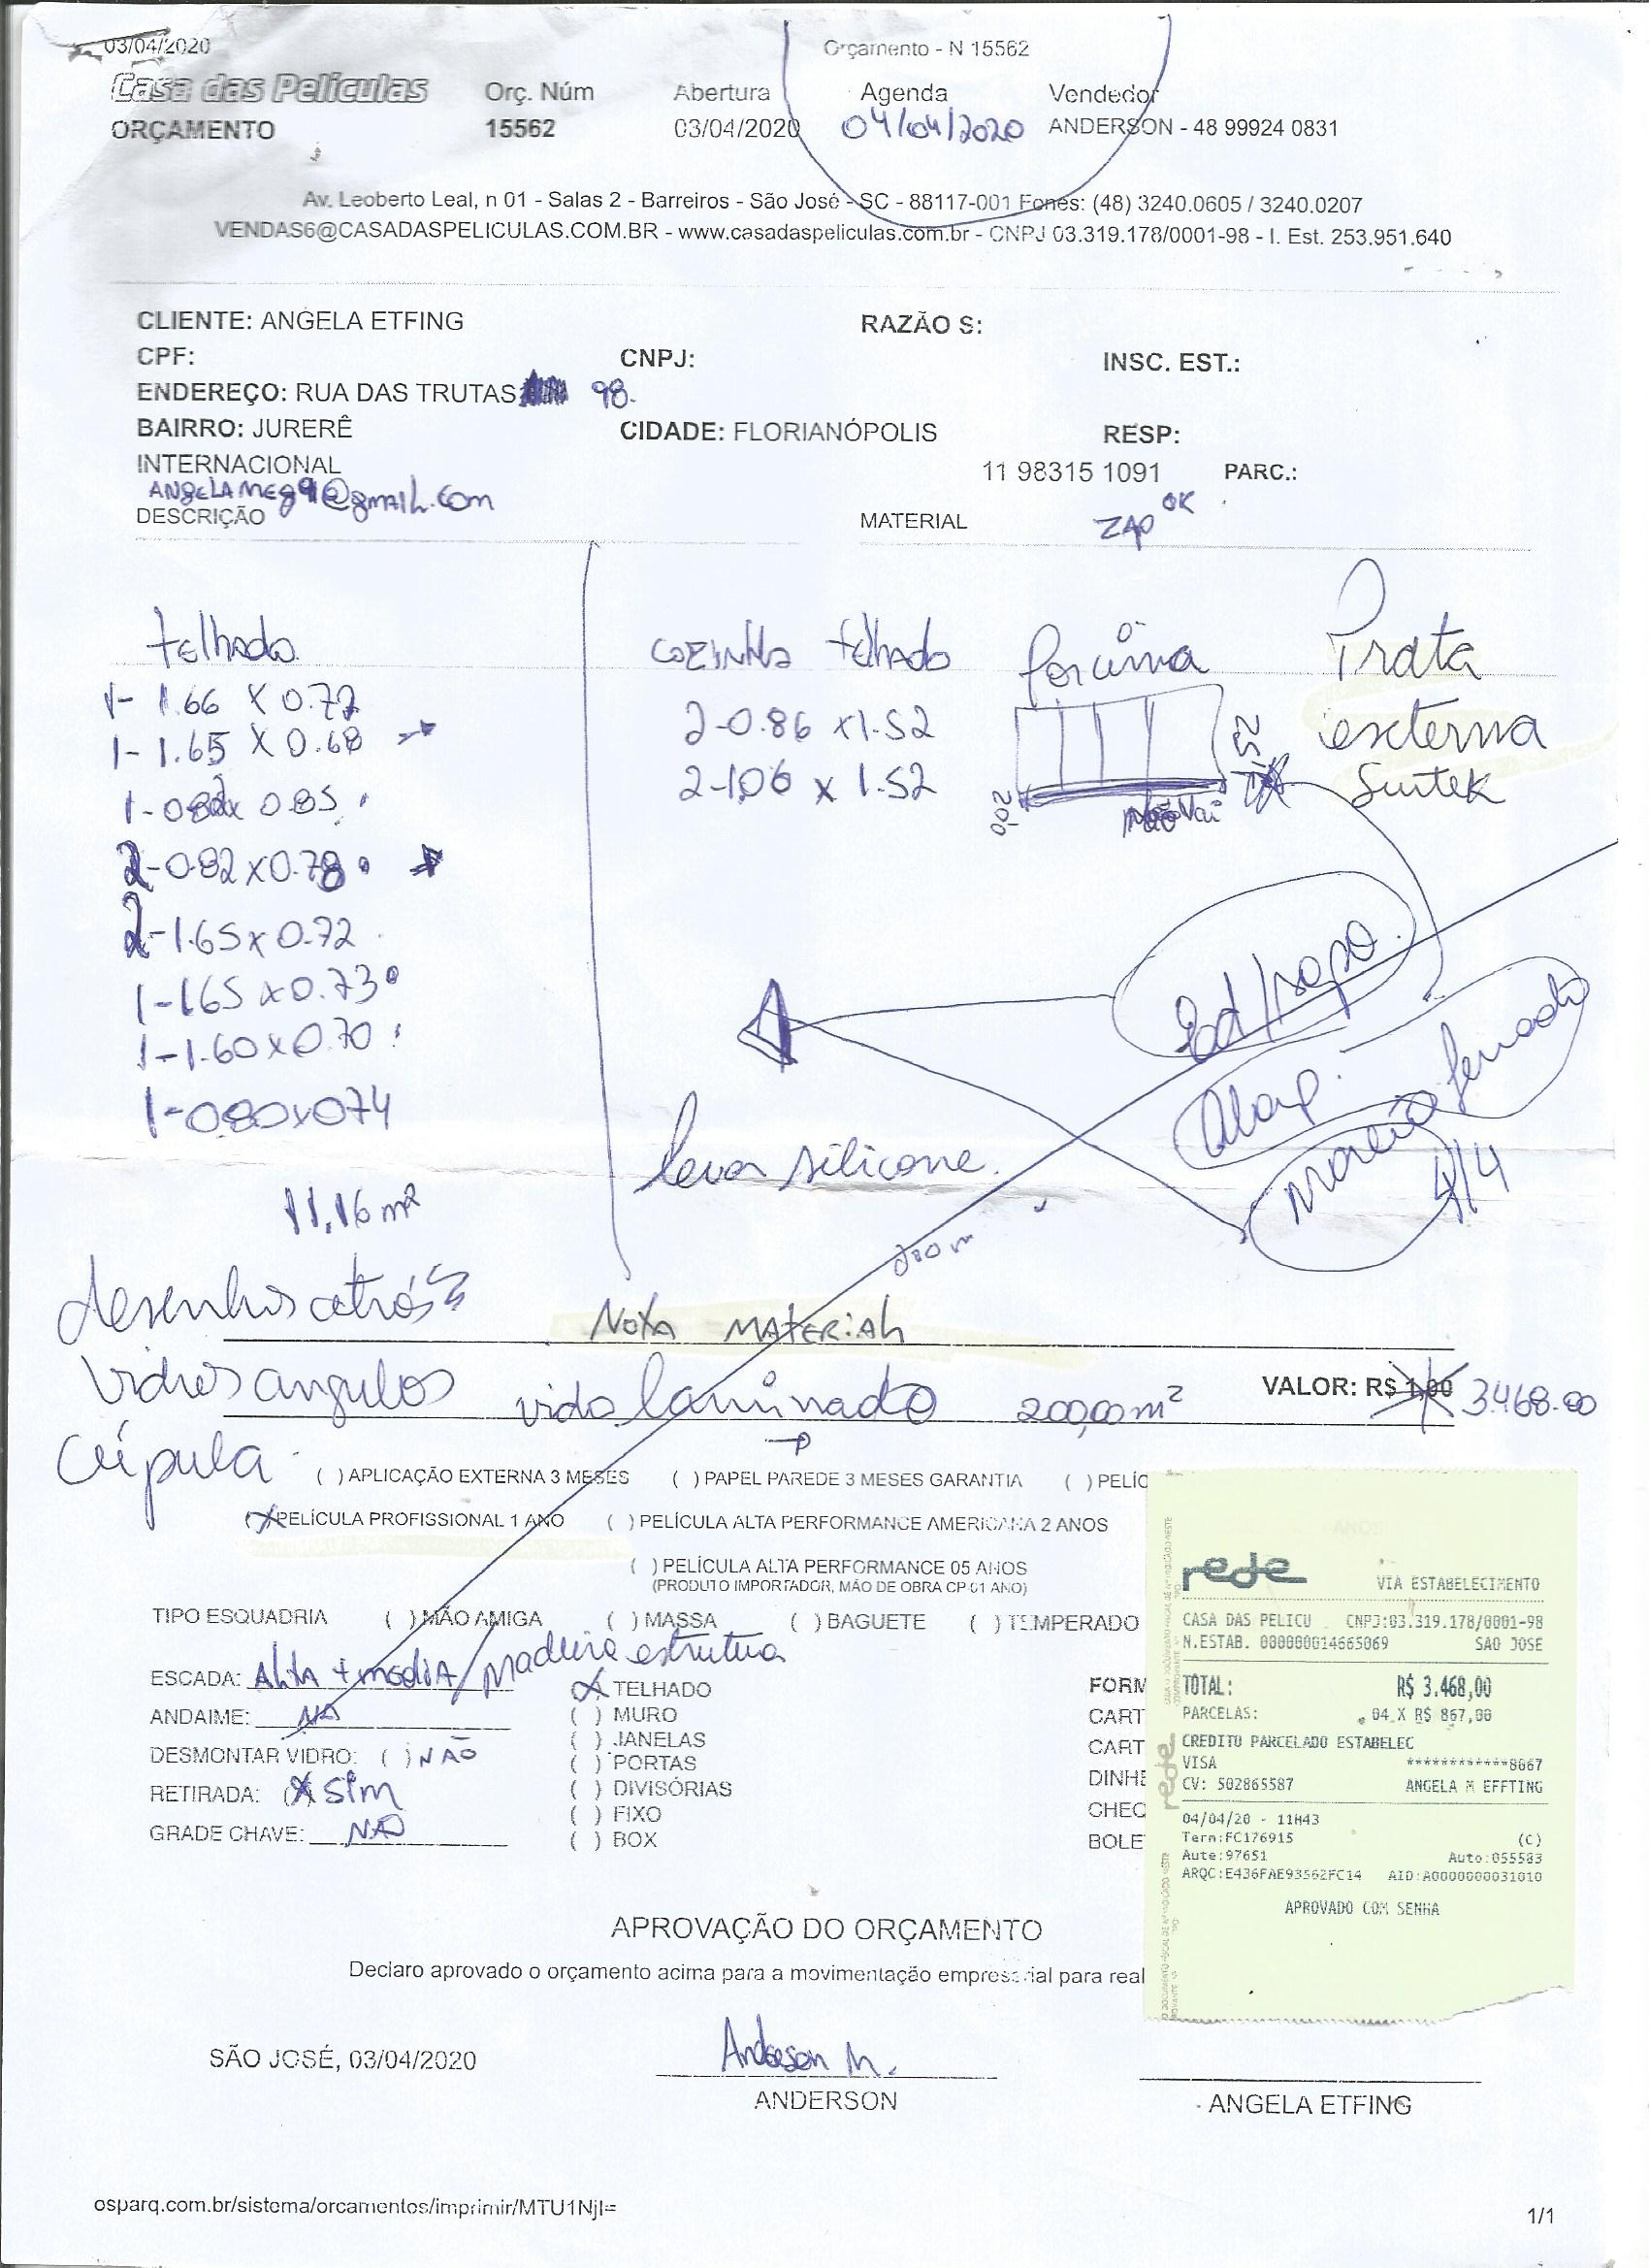 03/04/2020 Orçamento - N 15562
Casa das Películas Orç. Núm Abertura Agenda Vendedor
ORÇAMENTO 15562 03/04/2020 04/04/2020 ANDERSON - 48 99924 0831
Av. Leoberto Leal, n 01 - Salas 2 - Barreiros - São José - SC - 88117-001 Fones: (48) 3240.0605 / 3240.0207
VENDAS6@CASADASPELICULAS.COM.BR - www.casadaspeliculas.com.br - CNPJ 03.319.178/0001-98 - I. Est. 253.951.640
CLIENTE: ANGELA ETFING RAZÃO S:
CPF: CNPJ: INSC. EST.:
ENDEREÇO: RUA DAS TRUTAS 98.
BAIRRO: JURERÊ CIDADE: FLORIANÓPOLIS RESP:
INTERNACIONAL 11 98315 1091 PARC.:
@gmail.com
DESCRIÇÃO MATERIAL ZAP OK
telhado
1- 1.66 X 0.72
1- 1.65 X 0.68
1-0.82x 0.85
2-0.82 x 0.78
2-1.65 x 0.72
1-1.65 x 0.73
1-1.60 x 0.70
1-0.80x074
11,16 m²
cozinha telhado por cima
2-0.86 x1.52
2-1.06 x 1.52
2.00
2.51
Não Vai
Prata
externa
Suntek
levar silicone.
4/4
desenhos atrás
Nota MATERIAL
vidros angulos vidro laminado 200,00m² VALOR: R$ 1,00 3.468.00
Cúpula
( ) APLICAÇÃO EXTERNA 3 MESES ( ) PAPEL PAREDE 3 MESES GARANTIA ( ) PELÍC
(X) PELÍCULA PROFISSIONAL 1 ANO ( ) PELÍCULA ALTA PERFORMANCE AMERICANA 2 ANOS
( ) PELÍCULA ALTA PERFORMANCE 05 ANOS
(PRODUTO IMPORTADOR, MÃO DE OBRA CP 01 ANO)
TIPO ESQUADRIA ( ) MÃO AMIGA ( ) MASSA ( ) BAGUETE ( ) TEMPERADO
ESCADA: Alta + media / madeira estrutura
ANDAIME: NÃO
DESMONTAR VIDRO: ( ) NÃO
RETIRADA: (X) Sim
GRADE CHAVE: NÃO
(X) TELHADO
( ) MURO
( ) JANELAS
( ) PORTAS
( ) DIVISÓRIAS
( ) FIXO
( ) BOX
FORM
CART
CART
DINHE
CHEC
BOLE
rede
VIA ESTABELECIMENTO
CASA DAS PELICU CNPJ:03.319.178/0001-98
N.ESTAB. 000000014665069 SAO JOSE
TOTAL: R$ 3.468,00
PARCELAS: 04 X R$ 867,00
CREDITO PARCELADO ESTABELEC
VISA ************8067
CV: 502865587 ANGELA M EFFTING
04/04/20 - 11H43
Term:FC176915 (C)
Aute:97651 Auto:055583
ARQC:E436FAE93562FC14 AID:A0000000031010
APROVADO COM SENHA
rede
APROVAÇÃO DO ORÇAMENTO
Declaro aprovado o orçamento acima para a movimentação empresarial para real
SÃO JOSÉ, 03/04/2020
Anderson M.
ANDERSON
ANGELA ETFING
osparq.com.br/sistema/orcamentos/imprimir/MTU1NjI= 1/1